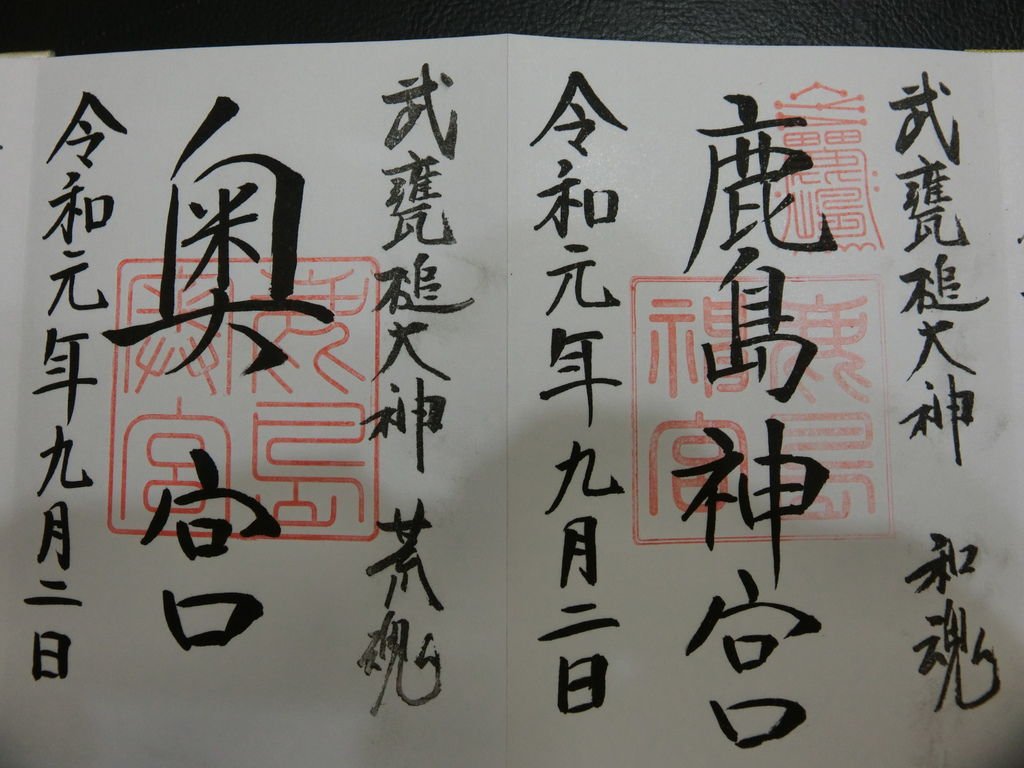 武甕槌大神 和魂
鹿島神宮
令和元年九月二日
武甕槌大神 荒魂
奥宮
令和元年九月二日
鹿島神宮